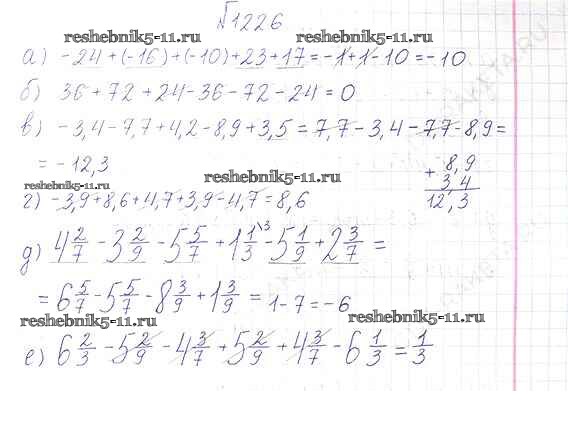 √1226
reshebnik5-11.ru reshebnik5-11.ru
а) -24+(-16)+(-10)+23+17=-1+1-10=-10
б) 36+72+24-36-72-24=0
в) -3,4-7,7+4,2-8,9+3,5=7,7-3,4-7,7-8,9=
=-12,3
+ 8,9
3,4
12,3
reshebnik5-11.ru
reshebnik5-11.ru
г) -3,9+8,6+4,7+3,9-4,7=8,6
д) 4 2/7 - 3 2/9 - 5 5/7 + 1 1/3 \3 - 5 1/9 + 2 3/7 =
= 6 5/7 - 5 5/7 - 8 3/9 + 1 3/9 = 1-7=-6
reshebnik5-11.ru reshebnik5-11.ru
е) 6 2/3 - 5 2/9 - 4 3/7 + 5 2/9 + 4 3/7 - 6 1/3 = 1/3